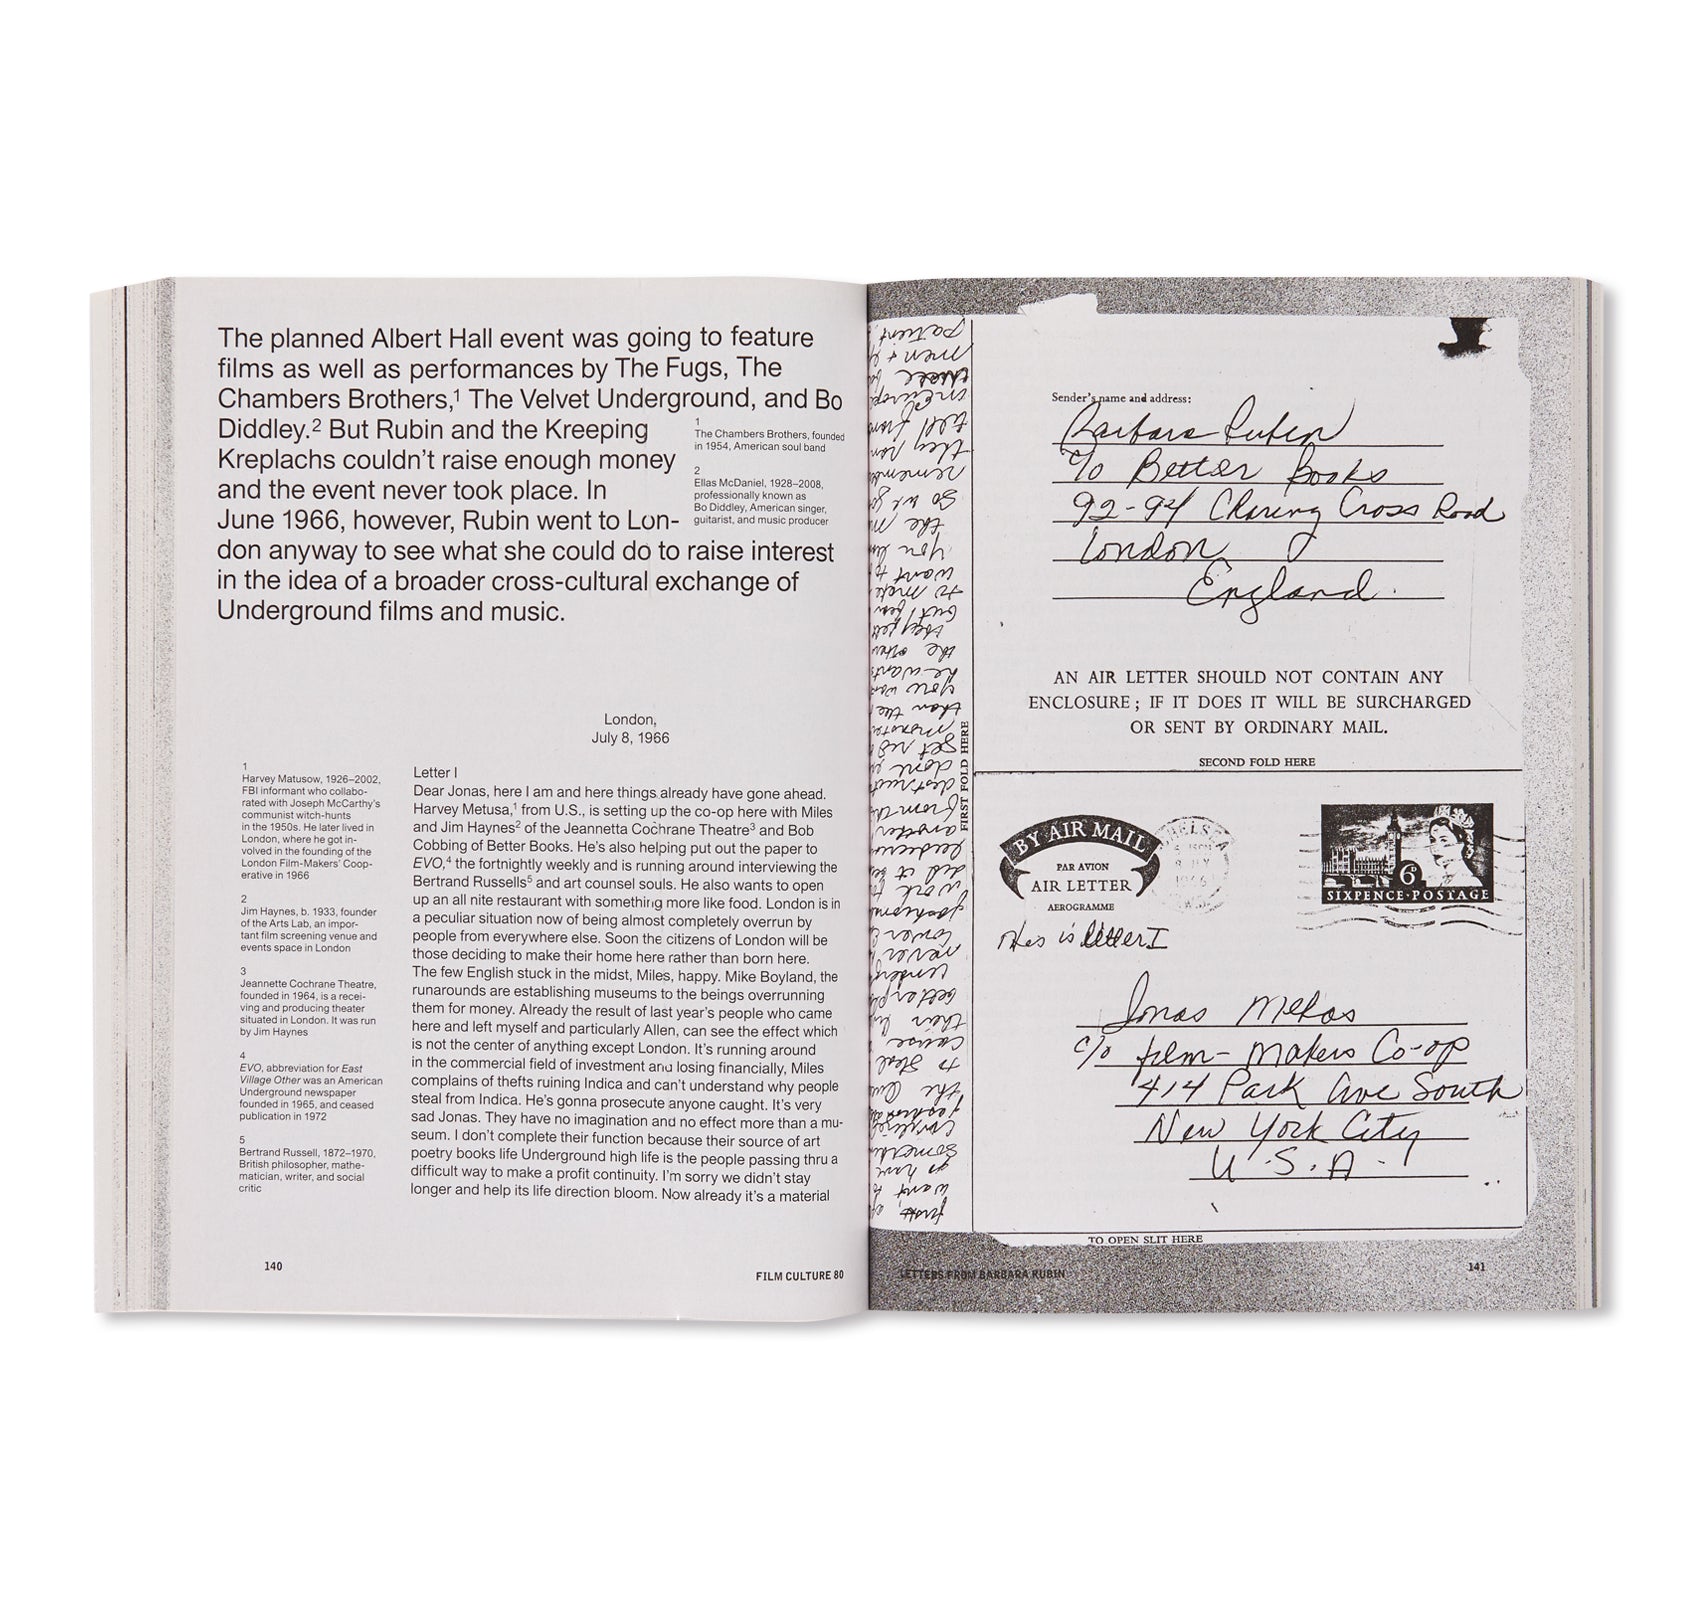 The planned Albert Hall event was going to feature
films as well as performances by The Fugs, The
Chambers Brothers,¹ The Velvet Underground, and Bo
Diddley.² But Rubin and the Kreeping
Kreplachs couldn't raise enough money
and the event never took place. In
June 1966, however, Rubin went to Lon-
don anyway to see what she could do to raise interest
in the idea of a broader cross-cultural exchange of
Underground films and music.
1
The Chambers Brothers, founded
in 1954, American soul band
2
Ellas McDaniel, 1928–2008,
professionally known as
Bo Diddley, American singer,
guitarist, and music producer
London,
July 8, 1966
1
Harvey Matusow, 1926–2002,
FBI informant who collabo-
rated with Joseph McCarthy's
communist witch-hunts
in the 1950s. He later lived in
London, where he got in-
volved in the founding of the
London Film-Makers' Coop-
erative in 1966
2
Jim Haynes, b. 1933, founder
of the Arts Lab, an impor-
tant film screening venue and
events space in London
3
Jeannette Cochrane Theatre,
founded in 1964, is a recei-
ving and producing theater
situated in London. It was run
by Jim Haynes
4
EVO, abbreviation for East
Village Other was an American
Underground newspaper
founded in 1965, and ceased
publication in 1972
5
Bertrand Russell, 1872–1970,
British philosopher, mathe-
matician, writer, and social
critic
Letter I
Dear Jonas, here I am and here things already have gone ahead.
Harvey Metusa,¹ from U.S., is setting up the co-op here with Miles
and Jim Haynes² of the Jeannetta Cochrane Theatre³ and Bob
Cobbing of Better Books. He's also helping put out the paper to
EVO,⁴ the fortnightly weekly and is running around interviewing the
Bertrand Russells⁵ and art counsel souls. He also wants to open
up an all nite restaurant with something more like food. London is in
a peculiar situation now of being almost completely overrun by
people from everywhere else. Soon the citizens of London will be
those deciding to make their home here rather than born here.
The few English stuck in the midst, Miles, happy. Mike Boyland, the
runarounds are establishing museums to the beings overrunning
them for money. Already the result of last year's people who came
here and left myself and particularly Allen, can see the effect which
is not the center of anything except London. It's running around
in the commercial field of investment and losing financially, Miles
complains of thefts ruining Indica and can't understand why people
steal from Indica. He's gonna prosecute anyone caught. It's very
sad Jonas. They have no imagination and no effect more than a mu-
seum. I don't complete their function because their source of art
poetry books life Underground high life is the people passing thru a
difficult way to make a profit continuity. I'm sorry we didn't stay
longer and help its life direction bloom. Now already it's a material
140
FILM CULTURE 80
Sender's name and address:
Barbara Rubin
c/o Better Books
92-94 Charing Cross Road
London
England.
AN AIR LETTER SHOULD NOT CONTAIN ANY
ENCLOSURE; IF IT DOES IT WILL BE SURCHARGED
OR SENT BY ORDINARY MAIL.
SECOND FOLD HERE
FIRST FOLD HERE
BY AIR MAIL
PAR AVION
AIR LETTER
AEROGRAMME
CHELSEA
1966
6D
SIXPENCE·POSTAGE
This is letter I
Jonas Mekas
c/o Film-Makers Co-op
414 Park Ave South
New York City
U.S.A.
TO OPEN SLIT HERE
LETTERS FROM BARBARA RUBIN
141